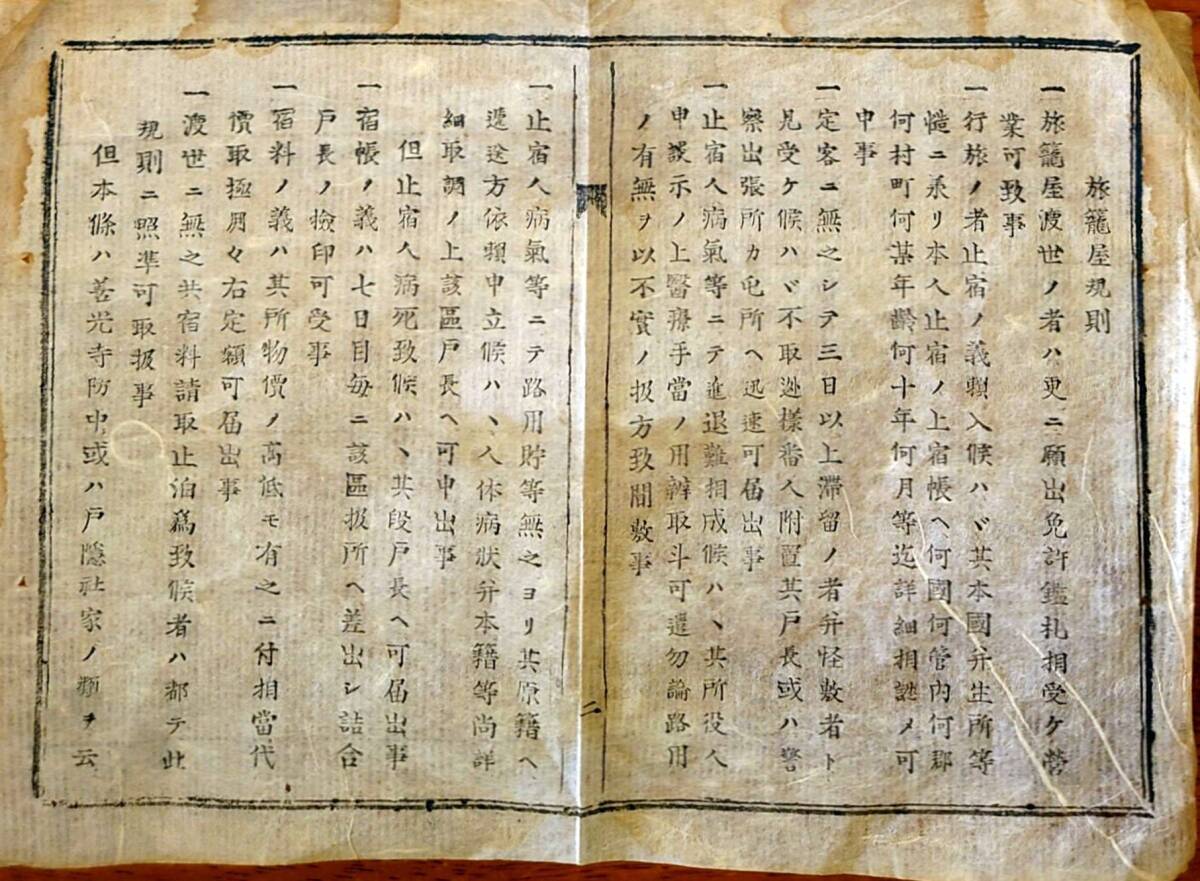 旅籠屋規則
一旅籠屋渡世ノ者ハ更ニ願出免許鑑札相受ケ營
業可致事
一行旅ノ者止宿ノ義頼入候ハヾ其本國幷生所等
慥ニ承リ本人止宿ノ上宿帳ヘ何國何管内何郡
何村町何某年齡何十年何月等迄詳細相認メ可
申事
一定客ニ無之シテ三日以上滯留ノ者幷怪敷者ト
見受ケ候ハヾ不取逃樣番人附置其戸長或ハ警
察出張所カ屯所ヘ迅速可届出事
一止宿人病氣等ニテ進退難相成候ハヽ其所役人
申談示ノ上醫療手當ノ用辨取斗可遣勿論路用
ノ有無ヲ以不實ノ扱方致間敷事
二
一止宿人病氣等ニテ路用貯等無之ヨリ其原籍ヘ
遞送方依頼申立候ハヽ人体病状幷本籍等尚詳
細取調ノ上該區戸長ヘ可申出事
但止宿人病死致候ハヽ其段戸長ヘ可届出事
一宿帳ノ義ハ七日目毎ニ該區扱所ヘ差出シ詰合
戸長ノ檢印可受事
一宿料ノ義ハ其所物價ノ高低モ有之ニ付相當代
價取極月々右定額可届出事
一渡世ニ無之共宿料請取止泊爲致候者ハ都テ此
規則ニ照準可取扱事
但本條ハ善光寺防中或ハ戸隱社家ノ類ヲ云